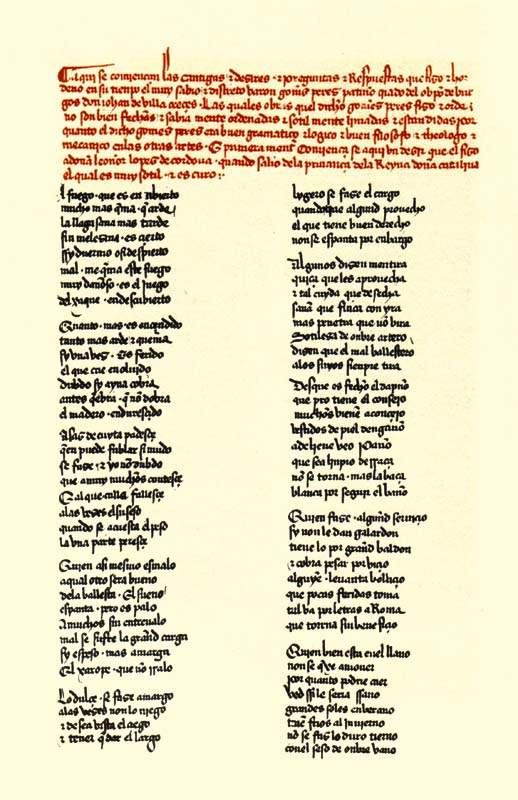 Aqui se comiençan las cantigas & desires & preguntas & Respuestas que fiso & hor
deno en su tienpo el muy sabio & discreto varon gomes peres patiño criado del obpo de bur
gos don iohan de villa creçes. Las quales obras quel dicho gomes peres fiso & ordeno
no son bien fechas & sabia mente ordenadas & sotil mente limadas & escandidas por
quanto el dicho gomes peres era buen gramatico & logico & buen filosofo & theologo &
mecanico en las otras artes. E primera mente Comiença se aqui un desir que el fiso
a doña leonor lopes de cordoua quando salio dela priuança dela Reyna doña catalina
el qual es muy sotil & es curo
El fuego que es en cubierto
mucho mas quema que arde
la llaga sana mas tarde
sin melesina es çierto
sy duermo o si despierto
mal me quema este fuego
muy dañoso es el juego
del xaque en descubierto
Quanto mas es ençendido
tanto mas arde & quema
sy vna ves es ferido
el que cae en oluido
dubdo sy ayna cobra
antes quebra que non dobra
el madero enduresçido
A las de cuyta padesçe
quien puede fablar si mudo
se fase & yo non dubdo
que a muy muchos contesçe
El que calla fallesçe
a las veses el su seso
quando se acuesta el peso
la vna parte peresçe
Quien asi mesmo es malo
a qual otro sera bueno
dela ballesta El sueno
espanta pero es palo
A muchos sin entreualo
mal se sufre la grand carga
sy es peso mas amarga
El xarope que non ijalo
Lo dulçe se fase amargo
a las veses non lo niego
& desea vista el çiego
& tener que dar el largo
lygero se fase el cargo
quando trae alguand prouecho
el que tiene buen derecho
non se espanta por enbargo
Algunos disen mentira
quiça que les aprouecha
& tal cuyda que desecha
saña que finca con yra
mas penetra que non vira
Sotilesa de onbre artero
disen que el mal ballestero
a los suyos sienpre tira
Desque es fecho el dapño
que pro tiene el consejo
muchos vienen a conçejo
vestidos de piel de engaño
adeleve veo paño
que sea linpio de rraça
non se torna mas la baça
blanca por seguir el baño
Quien fase algund seruiçio
sy non le dan galardon
tiene lo por grand baldon
& cobra pesar por viçio
alguno leuanta bolliçio
que pocas feridas toma
tal va por letras a Roma
que torna sin benefiçio
Quien bien esta en el llano
non se quiere mouer
por quanto podrie caer
ved si le seria sano
grandes soles en verano
fasen frios al inuierno
non se fase lo duro tierno
con el seso de onbre vano